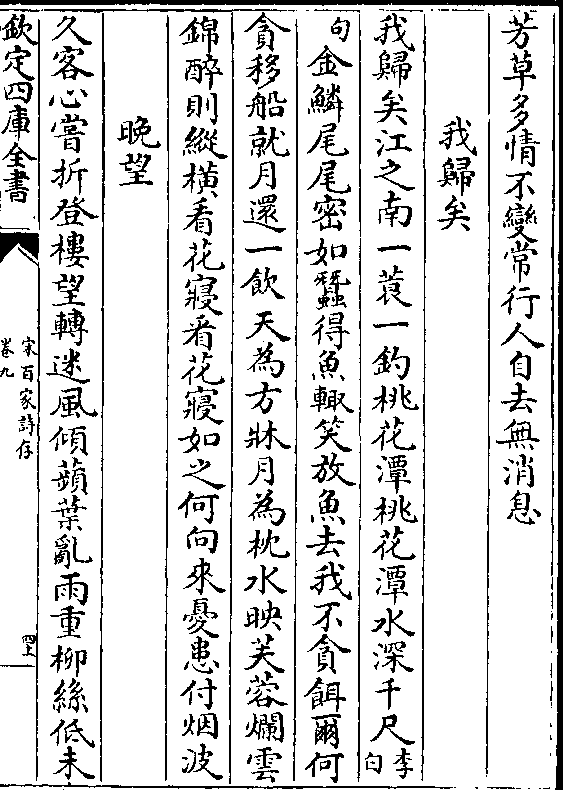 芳草多情不變常行人自去無消息
我歸矣
我歸矣江之南一蓑一釣桃花潭桃花潭水深千尺李白
句金鱗尾尾密如蠶得魚輙笑放魚去我不貪餌爾何
貪移船就月還一飲天為方牀月為枕水映芙蓉爛雲
錦醉則縱橫看花寢看花寢如之何向來憂患付烟波
晚望
久客心嘗折登樓望轉迷風傾蘋葉亂雨重柳絲低未
欽定四庫全書
宋百家詩存
卷九